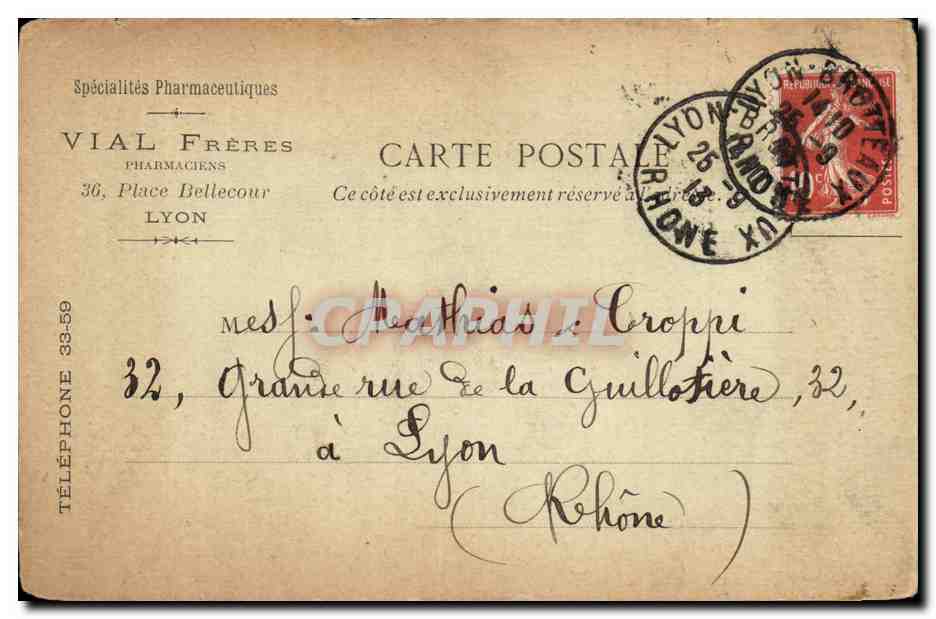 Spécialités Pharmaceutiques
VIAL FRÈRES
PHARMACIENS
36, Place Bellecour
LYON
TÉLÉPHONE 33-59
CARTE POSTALE
Ce côté est exclusivement réservé à l'adresse.
LYON-BROTTEAUX
25 -9
13
RHONE
LYON-BROTTEAUX
RHONE
RÉPUBLIQUE FRANÇAISE
10 c
POSTES
CPAPHIL
Messf: Mathias & Croppi
32, Grande rue de la Guillotière, 32,
à Lyon
(Rhône)